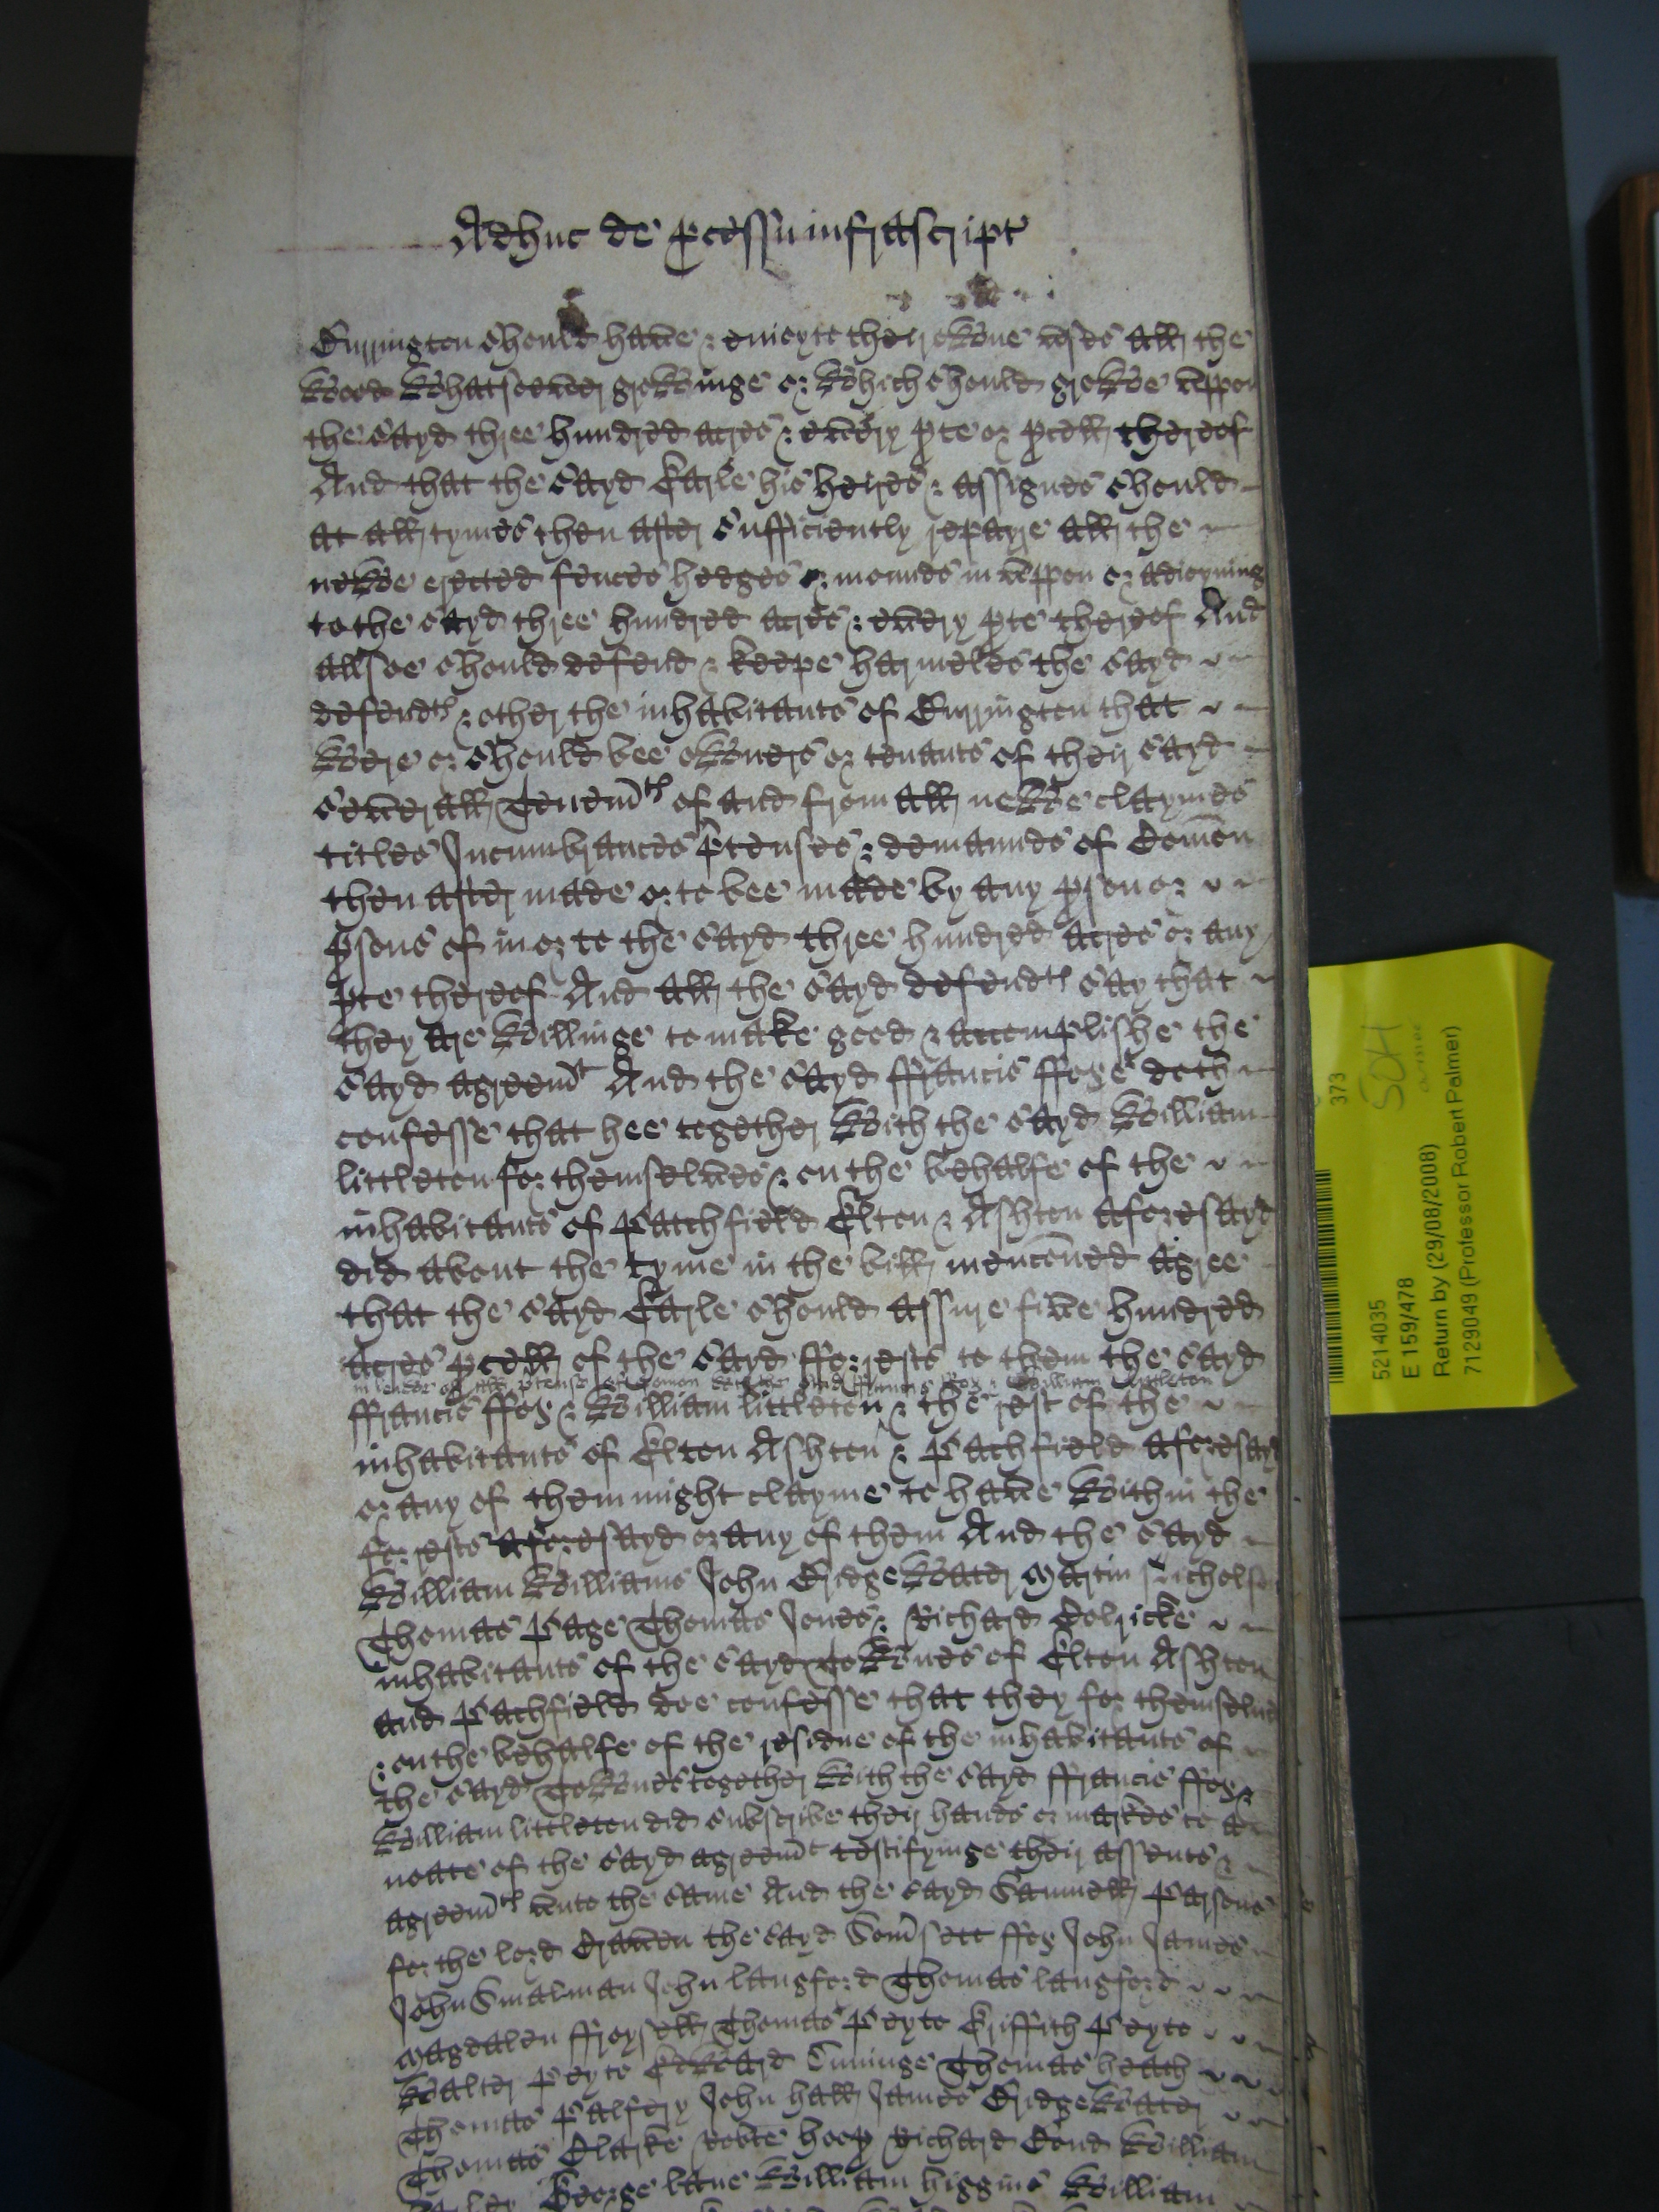 Adhuc de p̱cessu infrascript'
Burrington should have & enioye their owne uses all the
wood whatsoever growinge or which should growe uppon
the sayd three hundred acres & every p̱te or p̱cell thereof
And that the sayd Earle his heires & assignes should
at all tymes then after sufficiently repayre all the
newe erected fences hedges or mounds in uppon or adioyning
to the sayd three hundred acres & every p̱te thereof And
allsoe should defend & keepe harmeles the sayd
defend^tes & other the inhabitants of Burrington that
were or should bee owners or tenants of their sayd
severall Tenem^tes of and from all newe claymes
titles Incumbrances p̱tenses & demaunds of Com̄on
then after made or to bee made by any p̱son or
p̱sons of in or to the sayd three hundred acres or any
p̱te thereof And all the sayd defend^tes say that
they are willinge to make good & accomplishe the
sayd agreem^t And the sayd ffrancis ffoxe doth
confesse that hee together with the sayd William
Littleton for themselves & on the behalfe of the
inhabitants of Patchfield Elton & Ashton aforesayd
did about the tyme in the bill menc̄oned agree
that the sayd Earle should assure five hundred
acres p̱cell of the sayd fforests to them the sayd
in leiwe of all p̱tense of Com̄on w^ch the said ffrancis Fox & William Littleton
ffrancis ffox & William Littleton & the rest of the
inhabitants of Elton Ashton & Pachfield aforesayd
or any of them might clayme to have within the
forests aforesayd or any of them And the sayd
William Williams John Bridgewater Martin Nicholls
Thomas Page Thomas Jones & Richard Colricke
inhabitants of the sayd Townes of Elton Ashton
and Pachfield doe confesse that they for themselves
& on the behalfe of the residue of the inhabitants of
the sayd Townes together with the sayd ffrancis ffox &
William Littleton did subscribe their hands or markes to a
noate of the sayd agreem^t testifyinge their assents &
agreem^tes unto the same And the sayd Samuell Parsons
for the lord Craven the sayd Som̄sett ffox John James
John Smalman John Langford Thomas Langford
Magdalen ffroysell Thomas Peyto Griffith Peyto
Walter Peyto Edward Cuninge Thomas Heath
Thomas Palfrey John Hall James Bridgewater
Thomas Clarke Robte Hoop̱ Richard Bond William
George Lane William Higgins William
373
SOH
5214035
E 159/478
Return by (29/08/2008)
7129049 (Professor Robert Palmer)